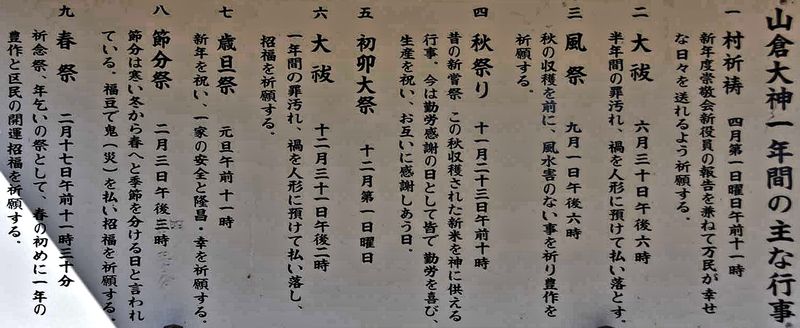 山倉大神一年間の主な行事
一 村祈祷 四月第一日曜日午前十一時
新年度崇敬会新役員の報告を兼ねて万民が幸せ
な日々を送れるよう祈願する。
二 大祓 六月三十日午後六時
半年間の罪汚れ、禍を人形に預けて払い落とす。
三 風祭 九月一日午後六時
秋の収穫を前に、風水害のない事を祈り豊作を
祈願する。
四 秋祭り 十一月二十三日午前十時
昔の新嘗祭 この秋収穫された新米を神に供える
行事。今は勤労感謝の日として皆で 勤労を喜び、
生産を祝い、お互いに感謝しあう日。
五 初卯大祭 十二月第一日曜日
六 大祓 十二月三十一日午後二時
一年間の罪汚れ、禍を人形に預けて払い落し、
招福を祈願する。
七 歳旦祭 元旦午前十一時
新年を祝い、一家の安全と隆昌・幸を祈願する。
八 節分祭 二月三日午後三時
節分は寒い冬から春へと季節を分ける日と言われ
ている。福豆で鬼(災)を払い招福を祈願する。
九 春祭 二月十七日午前十一時三十分
祈念祭、年乞いの祭として、春の初めに一年の
豊作と区民の開運招福を祈願する。